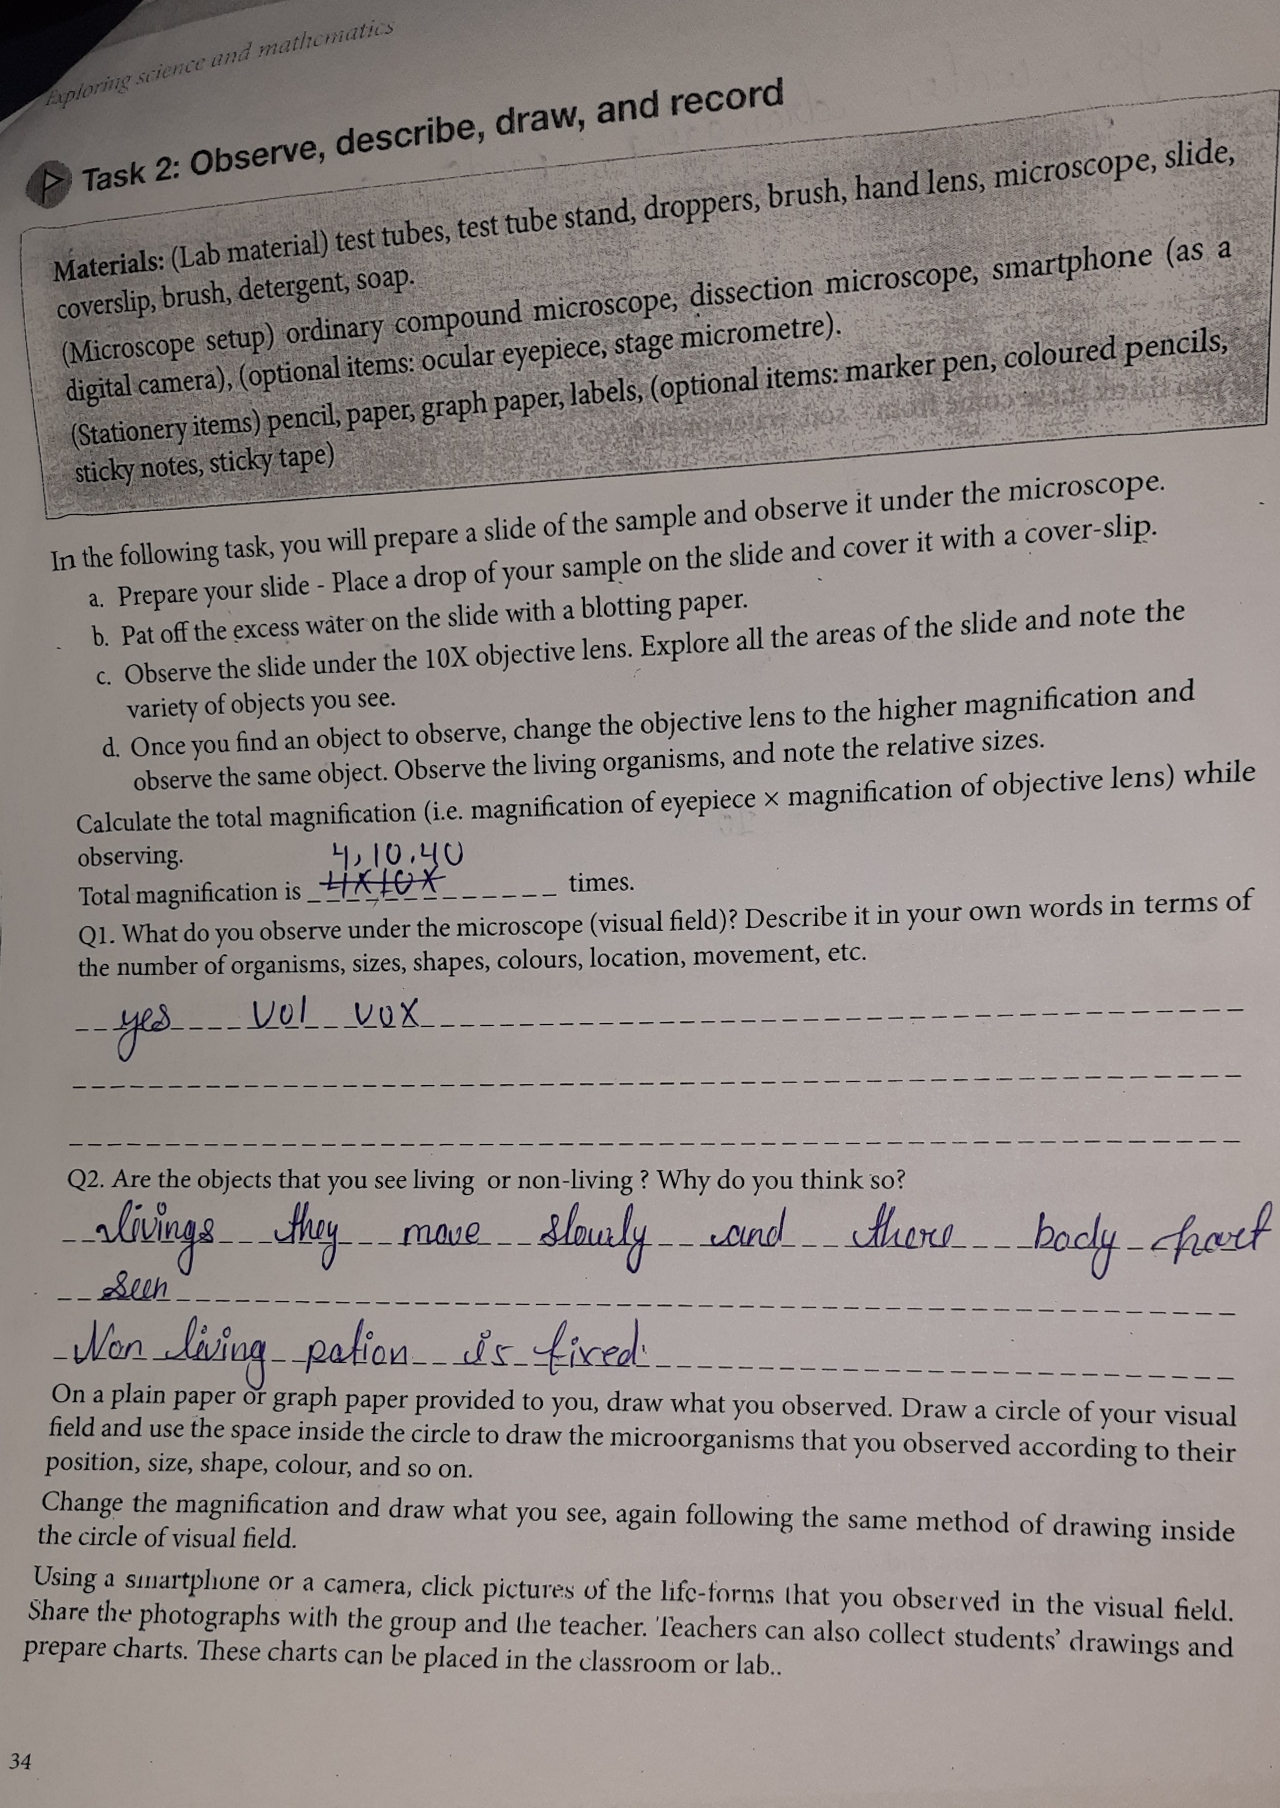 Exploring science and mathematics
Task 2: Observe, describe, draw, and record
Materials: (Lab material) test tubes, test tube stand, droppers, brush, hand lens, microscope, slide,
coverslip, brush, detergent, soap.
(Microscope setup) ordinary compound microscope, dissection microscope, smartphone (as a
digital camera), (optional items: ocular eyepiece, stage micrometre).
(Stationery items) pencil, paper, graph paper, labels, (optional items: marker pen, coloured pencils,
sticky notes, sticky tape)
In the following task, you will prepare a slide of the sample and observe it under the microscope.
a. Prepare your slide - Place a drop of your sample on the slide and cover it with a cover-slip.
b. Pat off the excess water on the slide with a blotting paper.
c. Observe the slide under the 10X objective lens. Explore all the areas of the slide and note the
variety of objects you see.
d. Once you find an object to observe, change the objective lens to the higher magnification and
observe the same object. Observe the living organisms, and note the relative sizes.
Calculate the total magnification (i.e. magnification of eyepiece × magnification of objective lens) while
observing.
4, 10, 40
Total magnification is 4X10X times.
Q1. What do you observe under the microscope (visual field)? Describe it in your own words in terms of
the number of organisms, sizes, shapes, colours, location, movement, etc.
yes vol vox
Q2. Are the objects that you see living or non-living ? Why do you think so?
livings they move slowly and there body part
seen
Non living is fixed.
On a plain paper or graph paper provided to you, draw what you observed. Draw a circle of your visual
field and use the space inside the circle to draw the microorganisms that you observed according to their
position, size, shape, colour, and so on.
Change the magnification and draw what you see, again following the same method of drawing inside
the circle of visual field.
Using a smartphone or a camera, click pictures of the life-forms that you observed in the visual field.
Share the photographs with the group and the teacher. Teachers can also collect students' drawings and
prepare charts. These charts can be placed in the classroom or lab..
34